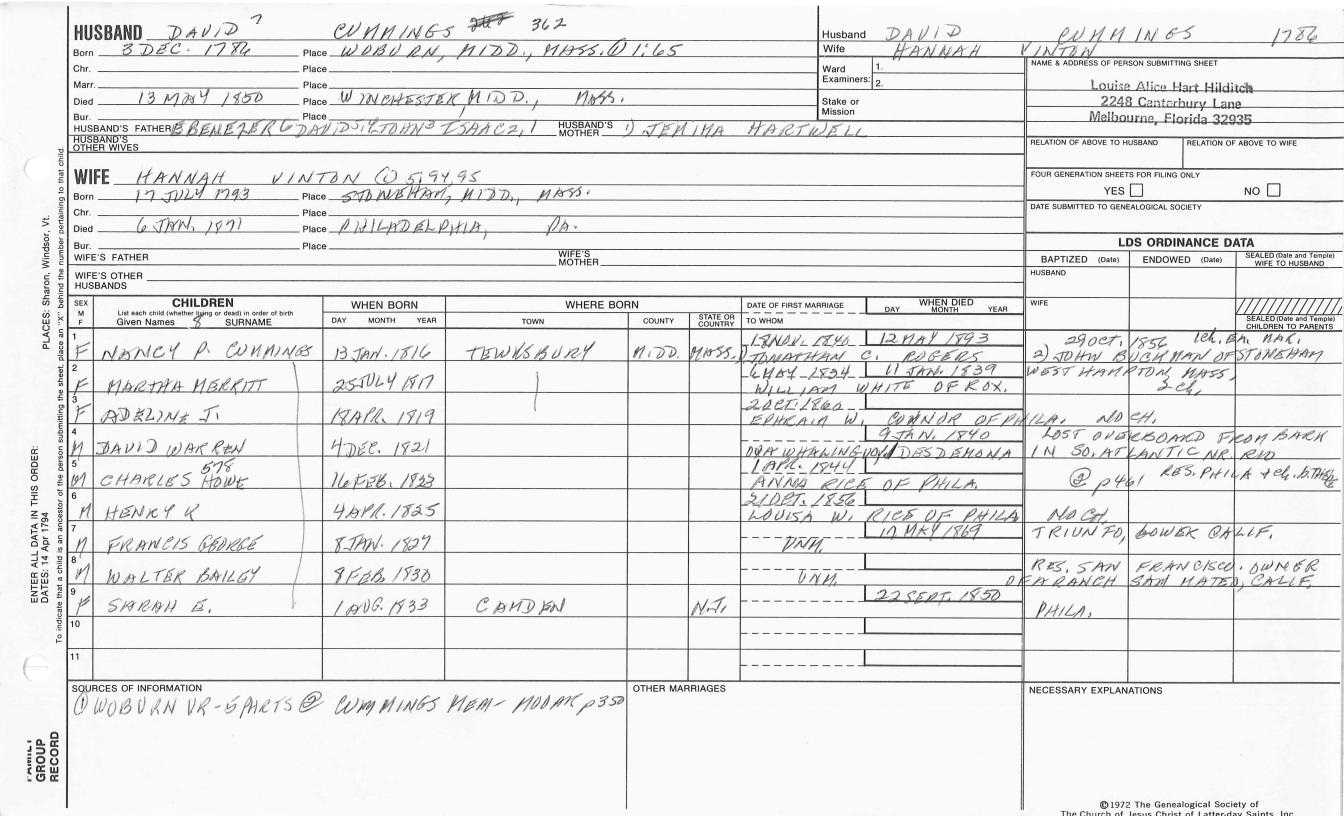 HUSBAND DAVID 7 CUMMINGS 362
Born 3 DEC. 1786 Place WOBURN, MIDD., MASS. ① 1:65
Chr. Place
Marr. Place
Died 13 MAY 1850 Place WINCHESTER, MIDD., MASS.
Bur. Place
HUSBAND'S FATHER EBENEZER 6 DAVID 5,4 JOHN 3 ISAAC 2,1 HUSBAND'S MOTHER 1) JEMIMA HARTWELL
HUSBAND'S OTHER WIVES
Husband DAVID CUMMINGS 1786
Wife HANNAH VINTON
Ward Examiners: 1.
2.
Stake or Mission
NAME & ADDRESS OF PERSON SUBMITTING SHEET
Louise Alice Hart Hilditch
2248 Canterbury Lane
Melbourne, Florida 32935
RELATION OF ABOVE TO HUSBAND RELATION OF ABOVE TO WIFE
FOUR GENERATION SHEETS FOR FILING ONLY
YES NO
DATE SUBMITTED TO GENEALOGICAL SOCIETY
WIFE HANNAH VINTON ① 5:94,95
Born 17 JULY 1793 Place STONEHAM, MIDD., MASS.
Chr. Place
Died 6 JAN. 1871 Place PHILADELPHIA, PA.
Bur. Place
WIFE'S FATHER WIFE'S MOTHER
WIFE'S OTHER HUSBANDS
LDS ORDINANCE DATA
BAPTIZED (Date) ENDOWED (Date) SEALED (Date and Temple) WIFE TO HUSBAND
HUSBAND
WIFE
SEALED (Date and Temple) CHILDREN TO PARENTS
SEX M F
CHILDREN
List each child (whether living or dead) in order of birth
Given Names 8 SURNAME
WHEN BORN
DAY MONTH YEAR
WHERE BORN
TOWN COUNTY STATE OR COUNTRY
DATE OF FIRST MARRIAGE
TO WHOM
WHEN DIED
DAY MONTH YEAR
1 F NANCY P. CUMMINGS 13 JAN. 1816 TEWKSBURY MIDD. MASS. 18 NOV. 1840 12 MAY 1893 29 OCT. 1856 1ch. EA. MAR.
1) JONATHAN C. ROGERS 2) JOHN BUCKMAN OF STONEHAM
2 F MARTHA MERRITT 25 JULY 1817 6 MAY 1834 11 JAN. 1839 WEST HAMPTON, MASS.
WILLIAM WHITE OF ROX. 2 ch.
3 F ADELINE J. 18 APR. 1819 2 OCT. 1860
EPHRAIM W. CONNOR OF PHILA. NO CH.
4 M DAVID WARREN 4 DEC. 1821 9 JAN. 1840 LOST OVERBOARD FROM BARK
ON A WHALING VOY. DESDEMONA IN SO. ATLANTIC NR. RIO
5 M CHARLES HOWE 578 16 FEB. 1823 1 APR. 1844
ANNA RICE OF PHILA. @ p461 RES. PHILA + ch. b. THERE
6 M HENRY K 4 APR. 1825 21 OCT. 1856
LOUISA W. RICE OF PHILA NO CH.
7 M FRANCIS GEORGE 8 JAN. 1827 UNM. 17 MAY 1869 TRIUNFO, LOWER CALIF.
8 M WALTER BAILEY 8 FEB. 1830 UNM. RES. SAN FRANCISCO. OWNER
OF A RANCH SAN MATEO, CALIF.
9 F SARAH E. 1 AUG. 1833 CAMDEN N.J. 22 SEPT. 1850 PHILA.
10
11
SOURCES OF INFORMATION
① WOBURN VR - 5 PARTS ② CUMMINGS MEM - MOOAR p350
OTHER MARRIAGES
NECESSARY EXPLANATIONS
©1972 The Genealogical Society of
The Church of Jesus Christ of Latter-day Saints, Inc.
PLACES: Sharon, Windsor, Vt.
To indicate that a child is an ancestor of the person submitting the sheet, place an "X" behind the number pertaining to that child.
ENTER ALL DATA IN THIS ORDER:
DATES: 14 Apr 1794
FAMILY GROUP RECORD